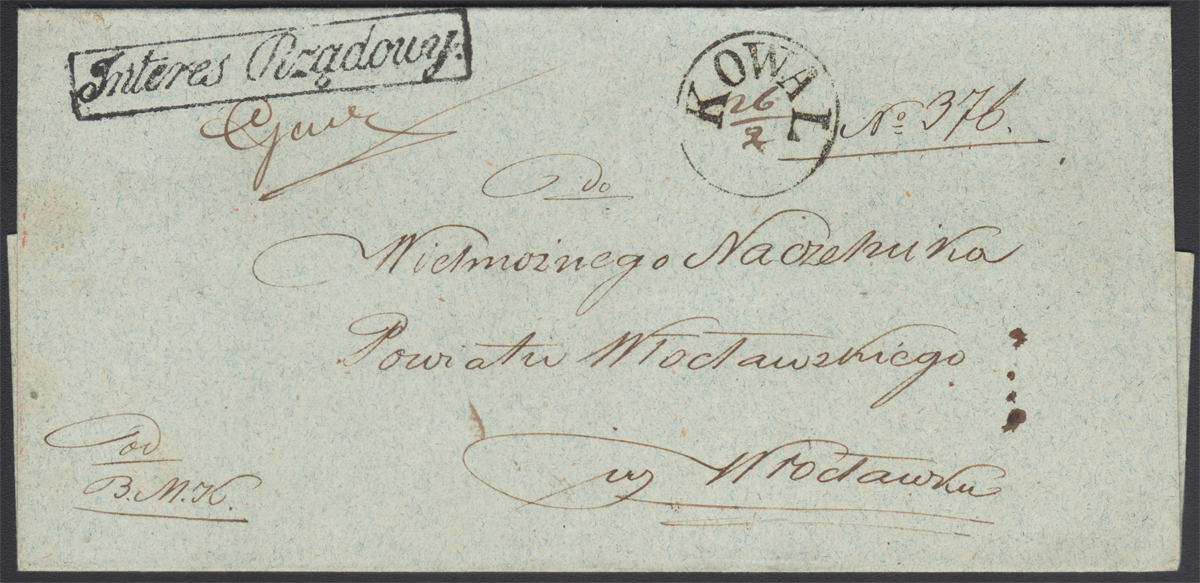 Interes Rządowy.
KOWAL
26/2
No 376.
do
Wielmożnego Naczelnika
Powiatu Włocławskiego
w Włocławku
od
B.M.K.